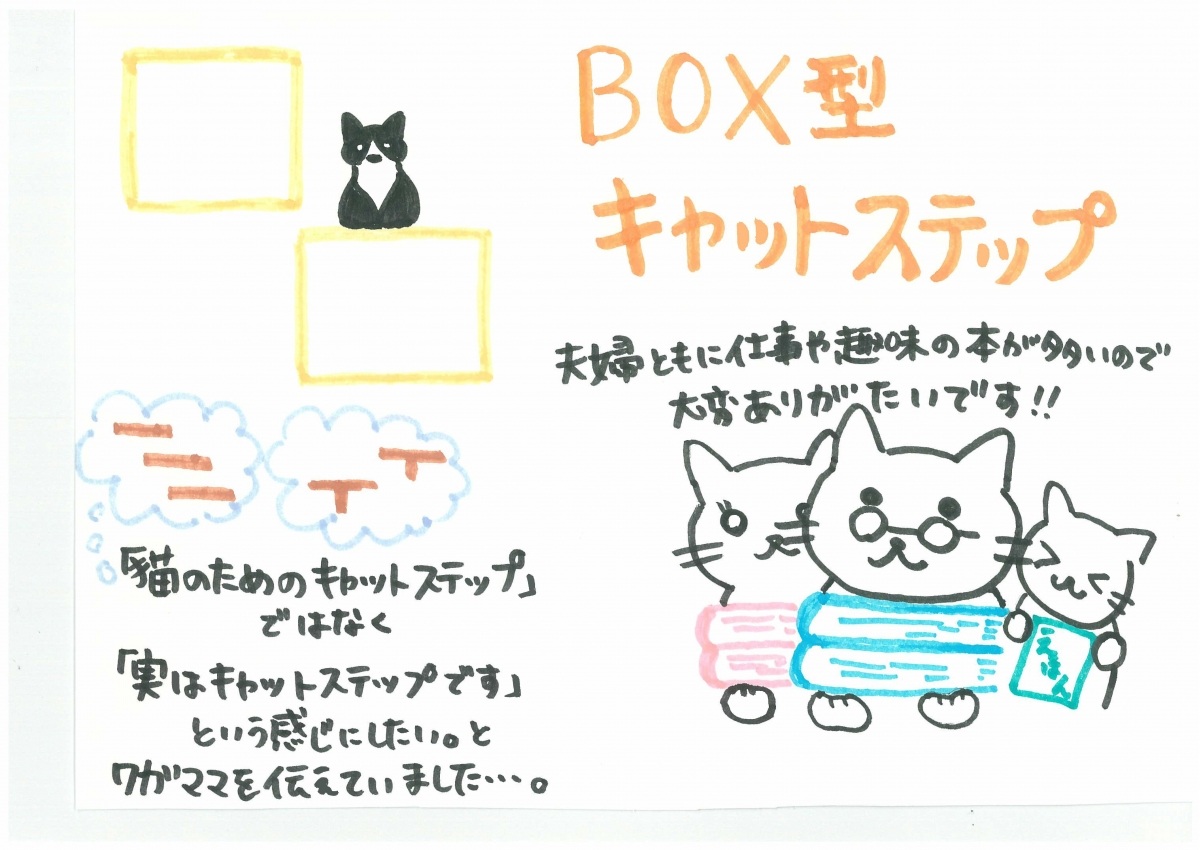 BOX型
キャットステップ
夫婦ともに仕事や趣味の本が多いので
大変ありがたいです!!
えほん
「猫のためのキャットステップ」
ではなく
「実はキャットステップです」
という感じにしたい。と
ワガママを伝えていました…。